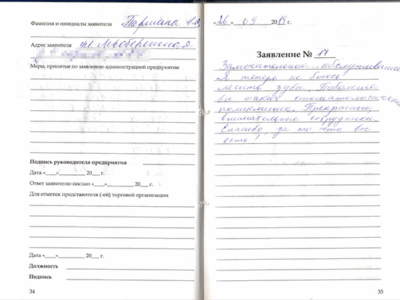 Фамилия и инициалы заявителя
Адрес заявителя
Меры, принятые по заявлению администрацией предприятия
Подпись руководителя предприятия
Дата «___»__________ 20___ г.
Ответ заявителю послан «___»__________ 20___ г.
Для отметок представителя (-ей) торговой организации
Дата «___»__________ 20___ г.
Должность
Подпись
34
26 09
Заявление № 17
Замечательное обслуживание.
Я теперь не боюсь
лечить зубы. Побольше
бы таких стоматологических
Прекрасные,
внимательные сотрудники.
Спасибо за то что вы
есть!
35